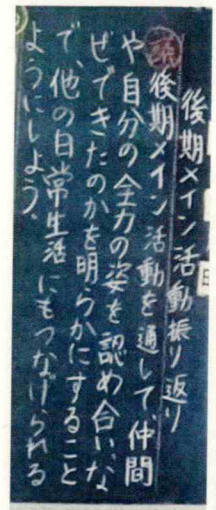 後期メイン活動振り返り
後期メイン活動を通して、仲間
や自分の全力の姿を認め合い、な
ぜできたのかを明らかにすること
で、他の日常生活にもつなげられる
ようにしよう。
日